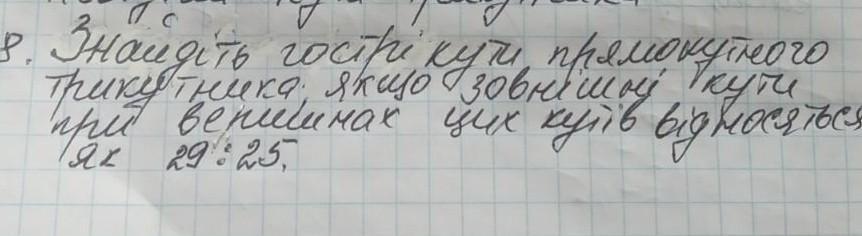 8. Знайдіть гострі кути прямокутного
трикутника, якщо зовнішні кути
при вершинах цих кутів відносяться
як 29:25.